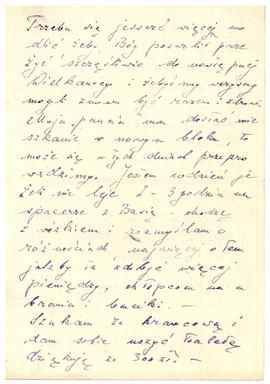 Trzeba się jeszcze więcej mo
dlić żeby Bóg pozwolił prze
żyć szczęśliwie do następnej
Wielkanocy i żebyśmy wszyscy
mogli znowu być razem i zdrowi
Moja pani ma dostać mie
szkanie w nowym bloku, to
może się w tych dniach przepro
wadzimy. Jestem codzień je
żeli nie leje 2-3 godzin na
spacerze z Basią - chodzę
z wózkiem i rozmyślam o
różnościach, najwięcej o tem
jakby tu zdobyć więcej
pieniędzy, chłopcom na u
brania i buciki. -
Szukam za krawcową i
dam sobie uszyć tą
dziękuję za 300 zł. -